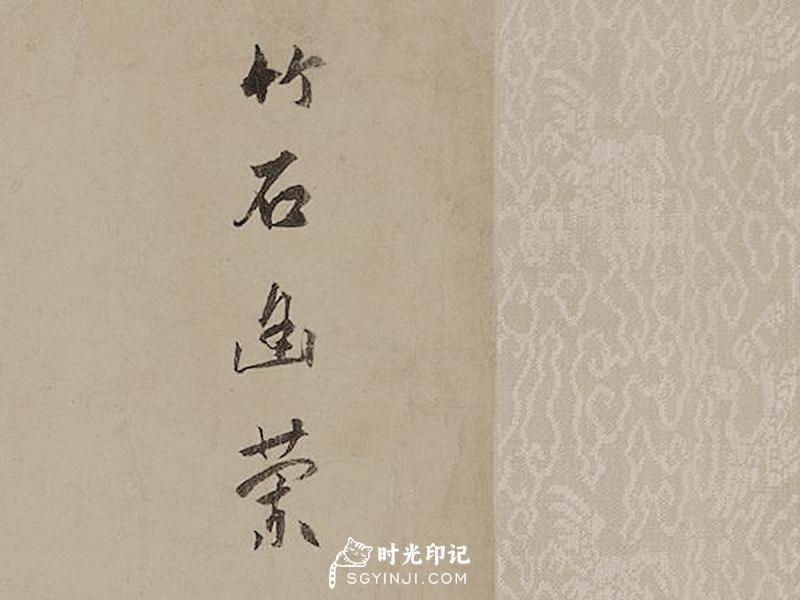 竹石幽蘭
时光印记
SGYINJI.COM